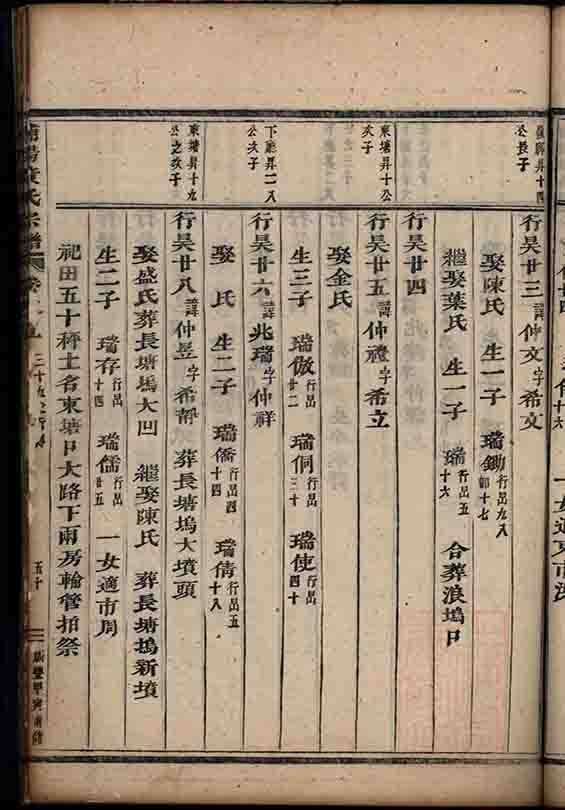 昇十四
公長子
行昊廿三諱仲文字希文
娶陳氏 生一子 瑞鋤行出九八郎十七
繼娶葉氏 生一子 瑞行出五十六 合葬浪塢口
行昊廿四
東塘昇十公
次子
行昊廿五諱仲禮字希立
娶金氏
生三子 瑞倣行出廿二 瑞侗行出三十 瑞使行出四十
下廳昇二八
公次子
行昊廿六諱兆瑞字仲祥
娶 氏 生二子 瑞僑行出四十四 瑞倩行出五十八
東塘昇十九
公之次子
行昊廿八諱仲昱字希靜 葬長塘塢大墳頭
娶盛氏葬長塘塢大凹 繼娶陳氏 葬長塘塢新墳
生二子 瑞存行出十四 瑞儒行出廿五 一女適市周
祀田五十秤土名東塘口大路下兩房輪管拍祭
氏宗譜
五十